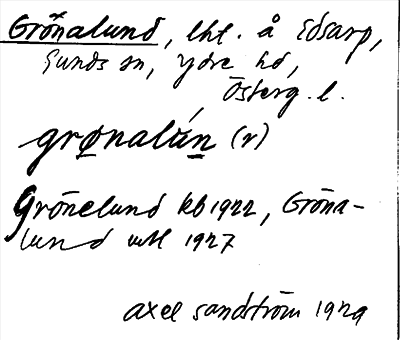 Grönalund, lht. å Edsarp,
Sunds sn, Ydre hd,
Österg. l.
grønalún (r)
Grönelund kb 1922, Gröna-
lund utM 1927
Axel Sandström 1929